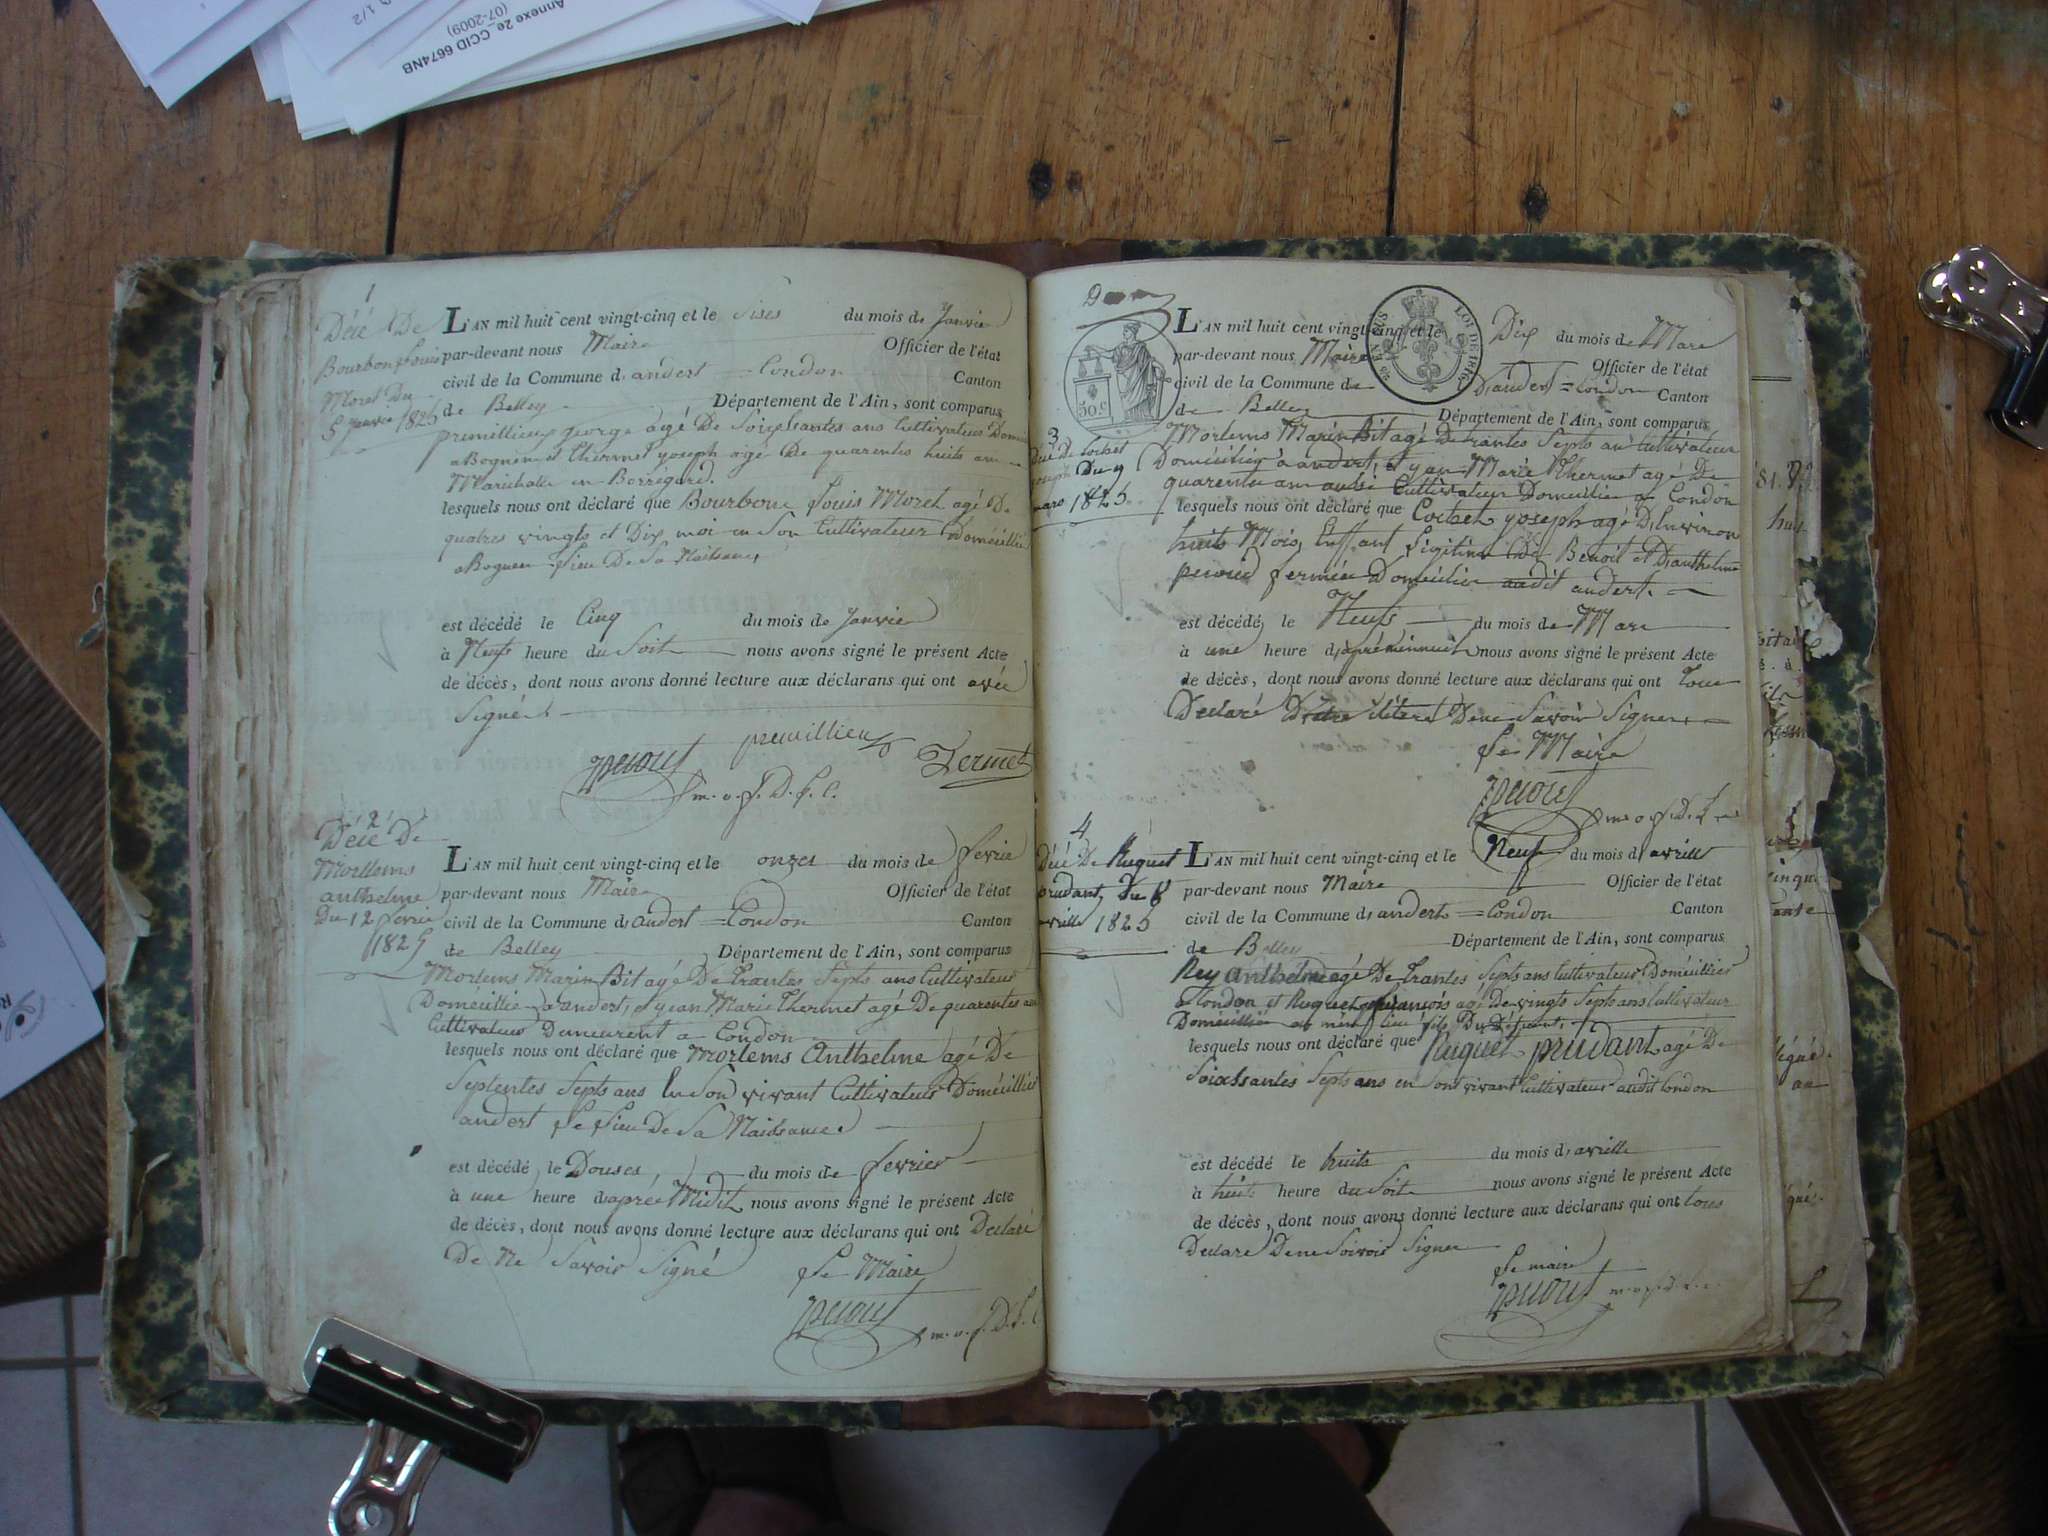 Annexe 2e_CCID 6674NB
(07-2009)
1/2
1
Décé De
Bourbon Louis
Moret Du
5 janvie 1825
L'AN mil huit cent vingt-cinq et le sises du mois de Janvie
par-devant nous Maire Officier de l'état
civil de la Commune d'andert = Condon Canton
de Belley Département de l'Ain, sont comparus
premillieux george agé De Soixsantes ans Cultivateur
a Bognen et thermet yoseph agé De quarentes huits ans
Marichalle en Borrégard.
lesquels nous ont déclaré que Bourbone Louis Moret agé De
quatres vingts et Dix moi en Son Cultivateur Doméillié
a Bognen Lieu De Sa Naissance,
est décédé le Cinq du mois de Janvie
à Neufs heure du Soit nous avons signé le présent Acte
de décès, dont nous avons donné lecture aux déclarans qui ont avéc
Signés
premillieux
Zermet
m. o. f. D. l. C.
2
Décé De
Mortems
anthelme
Du 12 fevrie
1825
L'AN mil huit cent vingt-cinq et le onzes du mois de fevrie
par-devant nous Maire Officier de l'état
civil de la Commune d'andert = Condon Canton
de Belley Département de l'Ain, sont comparus
Mortems Marin Bit agé De trantes Septs ans Cultivateur
Doméillie a andert, et yean Marie thermet agé De quarentes ans
Cultivateur Demeurent a Condon
lesquels nous ont déclaré que Mortems Anthelme agé De
Septentes Septs ans En Son vivant Cultivateur Doméillié
andert Le Lieu De Sa Naissance.
est décédé le Douses, du mois de fevrier
à une heure d'aprée Midit nous avons signé le présent Acte
de décès, dont nous avons donné lecture aux déclarans qui ont Declaré
De Ne Savoir Signé
Le Maire
m. o. f. D. l. C
TIMBRE ROYAL
50 c
LOI DE 1816
3
Décé De Corbet
yoseph Du 9
mars 1825
L'AN mil huit cent vingt-cinq et le Dix du mois de Mars
par-devant nous Maire Officier de l'état
civil de la Commune de D'andert = Condon Canton
de Belley Département de l'Ain, sont comparus
Mortems Marin Bit agé De trantes Septs an Cultivateur
Doméillié a andert, et yean Marie thermet agé De
quarente ans aussi Cultivateur Doméillie a Condon
lesquels nous ont déclaré que Corbet yoseph agé D'Environ
huits Mois, Enffant Ligitime De Benoit et D'anthelme
peroud fermiée Doméillie audit andert.
est décédé le Neufs du mois de Mars
à une heure d'aprémimuit nous avons signé le présent Acte
de décès, dont nous avons donné lecture aux déclarans qui ont tous
Declaré D'etre iliteré De ne Savoir Signer
Le Maire
4
Décé De Ruquet
prudant, Du 8
avrille 1825
L'AN mil huit cent vingt-cinq et le Neuf du mois d'avrill
par-devant nous Maire Officier de l'état
civil de la Commune d'andert = Condon Canton
de Belley Département de l'Ain, sont comparus
Rey anthelme agé De trantes Septs ans Cultivateur Doméillier
a Condon et Ruquet françois agé De vingts Septs ans Cultivateur
Doméillié au même lieu fils Du Défunt,
lesquels nous ont déclaré que Ruquet prudant agé De
Soixssantes Septs ans en Sont vivant Cultivateur audit Condon
est décédé le huits du mois d'avrille
à huit heure du Soit nous avons signé le présent Acte
de décès, dont nous avons donné lecture aux déclarans qui ont tous
Declaré De ne Soivoir Signer
Le maire